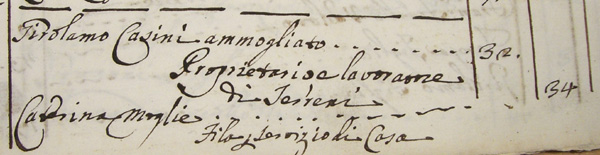 Girolamo Casini ammogliato . . . . . . . . 32.
Proprietario e lavorante
di Terreni
34
Caterina Moglie . . . . . . . . . . .
Fila, e servizio di Casa